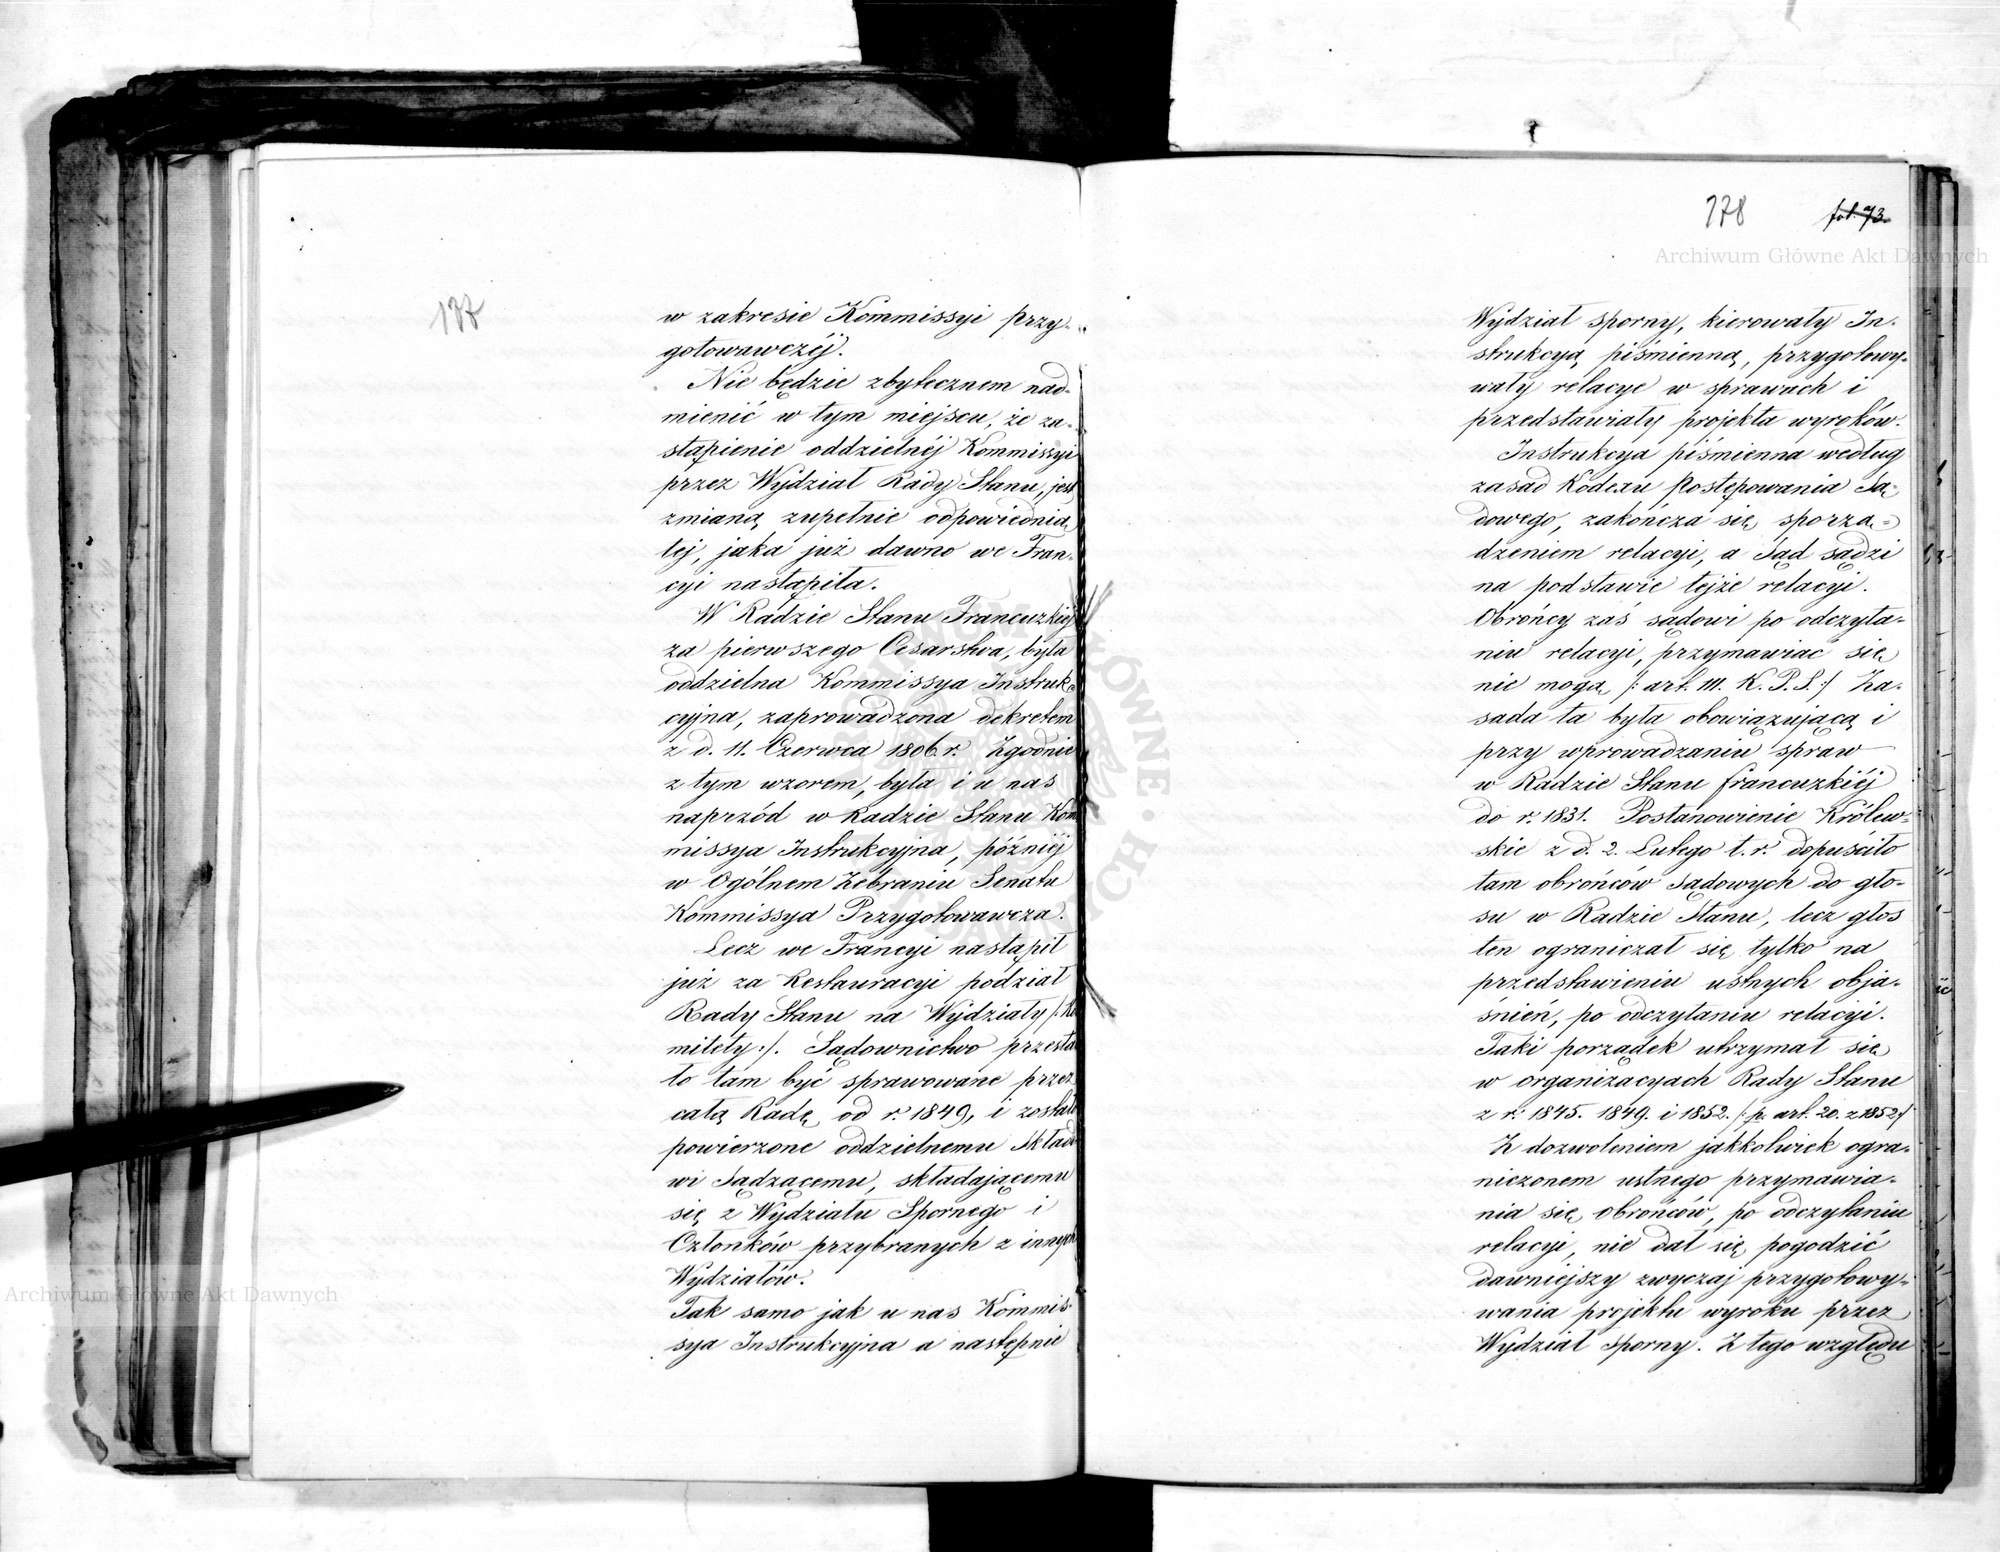 177
w zakresie Kommissyi przy-
gotowawczéj.
Nie będzie zbytecznem nad-
mienić w tym miejscu, że za-
stąpienie oddzielnéj Kommissyi
przez Wydział Rady Stanu, jest
zmianą zupełnie odpowiednią
tej, jaka już dawno we Fran-
cyi nastąpiła.
W Radzie Stanu Francuzkiéj
za pierwszego Cesarstwa, była
oddzielna Kommissya Instruk-
cyjna, zaprowadzona dekretem
z d. 11. Czerwca 1806. r. Zgodnie
z tym wzorem, była i u nas
naprzód w Radzie Stanu Kom
missya Instrukcyjna, późniéj
w Ogólnem Zebraniu Senatu
Kommissya Przygotowawcza.
Lecz we Francyi nastąpił
już za Restauracyi podział
Rady Stanu na Wydziały /: Ko
mitety :/. Sądownictwo przesta
ło tam być sprawowane przez
całą Radę od r. 1849, i zostało
powierzone oddzielnemu Składo
wi Sądzącemu, składającemu
się z Wydziału Spornego i
Członków przybranych z innych
Wydziałów.
Tak samo jak u nas Kommis-
sya Instrukcyjna a następnie
178 fol. 73.
Wydział sporny, kierowały In-
strukcyą piśmienną, przygotowy-
wały relacye w sprawach i
przedstawiały projekta wyroków.
Instrukcya piśmienna według
zasad Kodexu Postępowania Są-
dowego, zakończa się sporzą-
dzeniem relacyi, a Sąd sądzi
na podstawie tejże relacyi.
Obrońcy zaś sądowi po odczyta-
niu relacyi, przymawiać się
nie mogą /: art. 111. K. P. S. :/ Za-
sada ta była obowiązującą i
przy wprowadzaniu spraw
w Radzie Stanu francuzkiéj
do r. 1831. Postanowienie Królew-
skie z d. 2. Lutego t. r. dopuściło
tam obrońców Sądowych do gło-
su w Radzie Stanu, lecz głos
ten ograniczał się tylko na
przedstawieniu ustnych obja-
śnień, po odczytaniu relacyi.
Taki porządek utrzymał się
w organizacyach Rady Stanu
z r. 1845. 1849. i 1852. /: p. art. 20. z 1852 :/
Z dozwoleniem jakkolwiek ogra-
niczonem ustnego przymawia-
nia się obrońców, po odczytaniu
relacyi, nie dał się pogodzić
dawniejszy zwyczaj przygotowy-
wania projektu wyroku przez
Wydział Sporny. Z tego względu
Archiwum Główne Akt Dawnych
Archiwum Główne Akt Dawnych